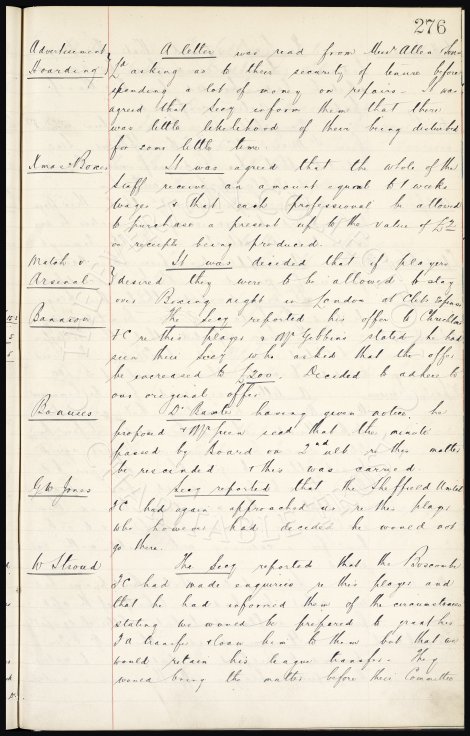 276
Advertisement A letter was read from Messrs Allen & Sons
Hoarding Ld asking as to their security of tenure before
spending a lot of money on repairs. It was
agreed that Secy inform them that there
was little likelihood of them being disturbed
for some little time.
Xmas Boxes It was agreed that the whole of the
staff receive an amount equal to 1 weeks
wages & that each professional be allowed
to purchase a present up to the value of £2
on receipts being produced.
Match v It was decided that if players
Arsenal desired they were to be allowed to stay
over Boxing night in London at Clubs expense
The Secy reported his offer to
FC re this player & Mr Gibbins stated he had
seen their Secy who asked that the offer
be increased to £300. Decided to adhere to
our original offer.
Bonuses Dr having given notice he
proposed & Mr secd that the minute
passed by Board on 2nd ult re this matter
be rescinded & this was carried
G W Jones Secy reported that the Sheffield United
FC had again approached us re this player
who however had decided he would not
go there.
W Stroud The Secy reported that the Boscombe
FC had made enquiries re this player and
that he had informed them of the circumstances
stating we would be prepared to grant his
FA transfer & loan him to them but that we
would retain his league transfer. They
would bring the matter before their Committee